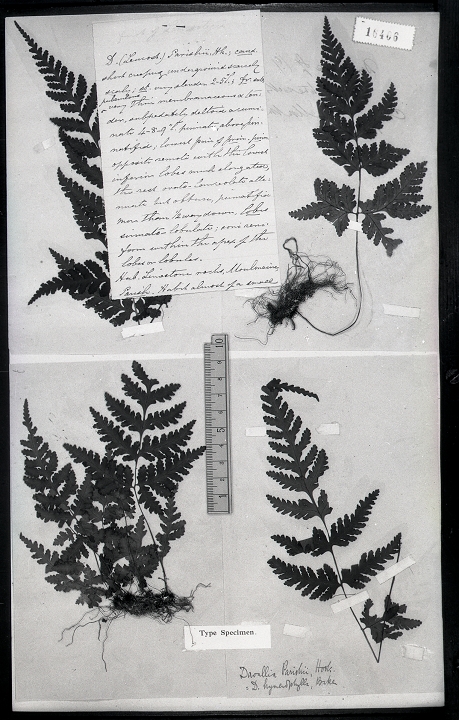 16466
D. (Leucost.) Parishii, Hk.; caud.
short creeping underground scarcely
scaly; st. very slender 2-5 l.; fr. sub
pulvinate
very thin membranaceous & ten-
der, subpedately deltoid acumi-
nate 2-3-4 l. pinnate, above pin-
natifid; lowest pair of pinn. pinn.
opposite remote with the lowest
inferior lobes much elongated,
the rest ovato-lanceolate all
nate but obtuse, pinnatifid
more than ½ way down, lobes
sinuato-lobulate; sori reni-
form within the apex of the
lobes or lobules.
Hab. Limestone rocks, Moulmein,
Parish. Habit almost of a small
10
5
1
Type Specimen.
Davallia Parishii, Hook.
= D. hymenophylla, Baker